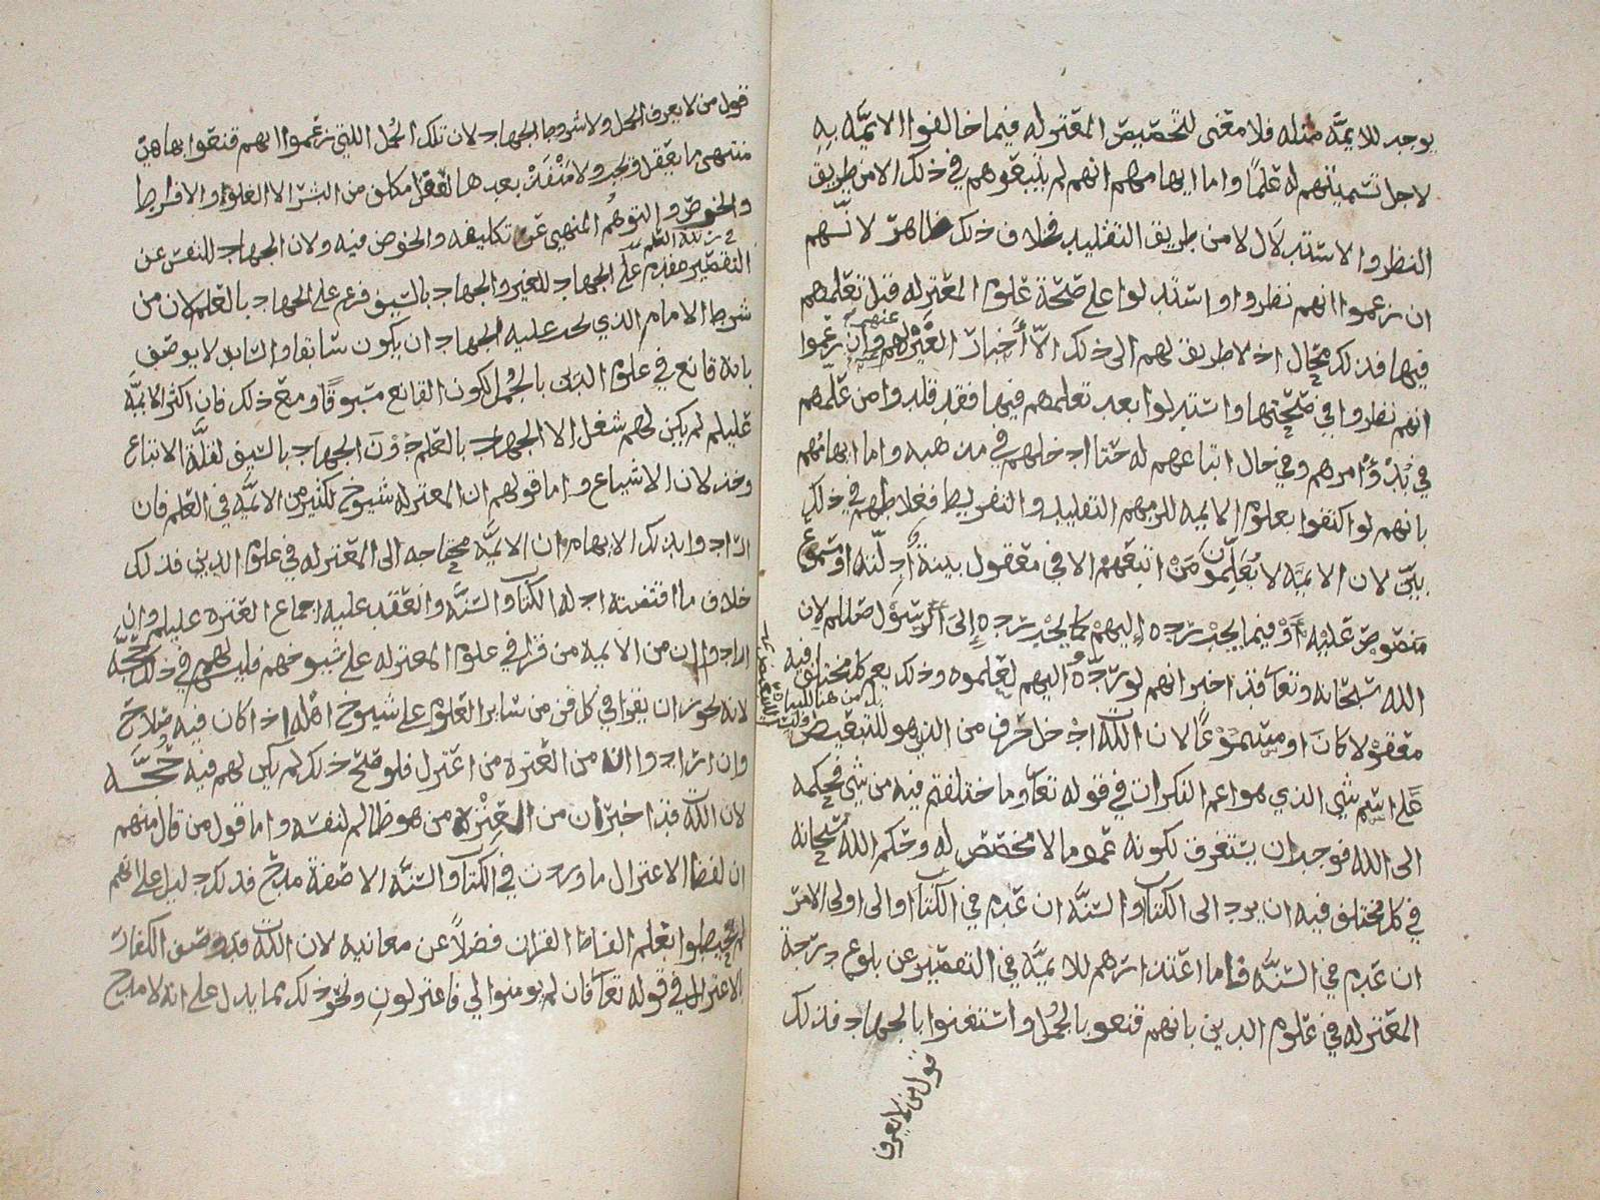 يوجد للايمَّه مثله فلا معنى لتخصيص المعتزله فيما خالفوا الايمَّه به
لاجل تسميتهم له علمًا واما ايهامهم انهم لم يتبعوهم في ذلك الا من طريق
النظر والاستدلال لا من طريق التقليد فخلاف ذلك ظاهر لانهم
ان زعموا انهم نظروا واستدلوا على صحة علوم المعتزله قبل تعلمهم
فيها فذلك محال اذ لا طريق لهم الى ذلك الا أخبار المعتزله عنهم وان زعموا
انهم نظروا في صحتها واستدلوا بعد تعلمهم فيها فقد قلدوا من علمهم
في بُدُوِّ امرهم وفي حال اتباعهم له حتا ادخلهم في مذهبه واما ايهامهم
بانهم لو اكتفوا بعلوم الايمه للزمهم التقليد والتفريط فغلاطهم في ذلك
بيّن لان الايمَّه لا يُعَلِّمون مَنْ اتبعهم الا في معقول بينة أدلّته او مسموع
منصوص عليه أوْ فيما يجب رده إليهم كما يجب رده إلى الرسول صللم لان
الله سبحانه وتعا قد اخبر انهم لو ردُّوه اليهم لعلموه وذلك يعم كل مختلف فيه
معقولا كان او مسموعًا لان الله ادخل حرف من الذي هو للتبعيض
على اسم شي الذي هو اعم النكرات في قوله تعا وما اختلفتم فيه من شي فحكمه
الى الله فوجب ان يستغرق لكونه عموما لا مخصص له وحكم الله سبحانه
في كل مختلف فيه ان يرد الى الكتاب والسنَّه ان عدم في الكتاب او الى اولي الامر
ان عدم في السنَّه فاما اعتذارهم للايمَّه في التقصير عن بلوغ درجة
المعتزله في علوم الدين بانهم قنعو بالجُمل واشتغلوا بالجهاد فذلك
قول من لا يعرف
قول من لا يعرف الجمل ولا شروط الجهاد لان تلك الجُمل اللتي زعموا انهم قنعوا بها هي
منتهى ما يعقل ولا مَنْفَذ بعدها للعقل مكلف من البشر الا الغلو والافراط
والخوض والتوهُّم المنهيى عن تكليفه والخوض فيه ولان الجهاد للنفس عن
التقصير في تعلم العلم مقدم على الجهاد للغير والجهاد بالسيف فرع على الجهاد بالعلم لان من
شرط الامام الذي يجب عليه الجهاد ان يكون سابقا والسابق لا يوصف
بانه قانع في علوم الدين بالجُمل لكون القانع مسبوقًا ومع ذلك فان اكثر الايمَّه
عليلم لم يكن لهم شغل الا الجهاد بالعلم دوْن الجهاد بالسيف لقلَّة الاتباع
وخذلان الاشياع واما قولهم ان المعتزله شيوخ لكثير من الايمَّه في العلم فان
ارادوا بذلك الايهام ان الايمَّه محتاجه الى المعتزله في علوم الدين فذلك
خلاف ما اقتضته ادله الكتاب والسنَّه وانعقد عليه اجماع العتره عليلم وان
ارادوا ان من الايمة من قرا في علوم المعتزله على شيوخهم فليس لهم في ذلك حجَّه
لانه يجوز ان يقرا في كل فن من ساير العلوم على شيوخ اهله اذا كان فيه صلاح
وان ارادوا ان من العتره من اعتزل فلو صح ذلك لم يكن لهم فيه حُجَّه
لان الله قد اخبر ان من العِتْرة من هو ظالم لنفسه واما قول من قال منهم
ان لفظ الاعتزال ما ورد في الكتاب والسنَّه الا صفة مدح فذلك دليل على انهم
لم يحيطوا بعلم الفاظ القران فضلاً عن معانيه لان الله قد وصف الكفار
بالاعتزال في قوله تعا فان لم يومنوا لي فاعتزلون ونحو ذلك مما يدل على انه لا مدح